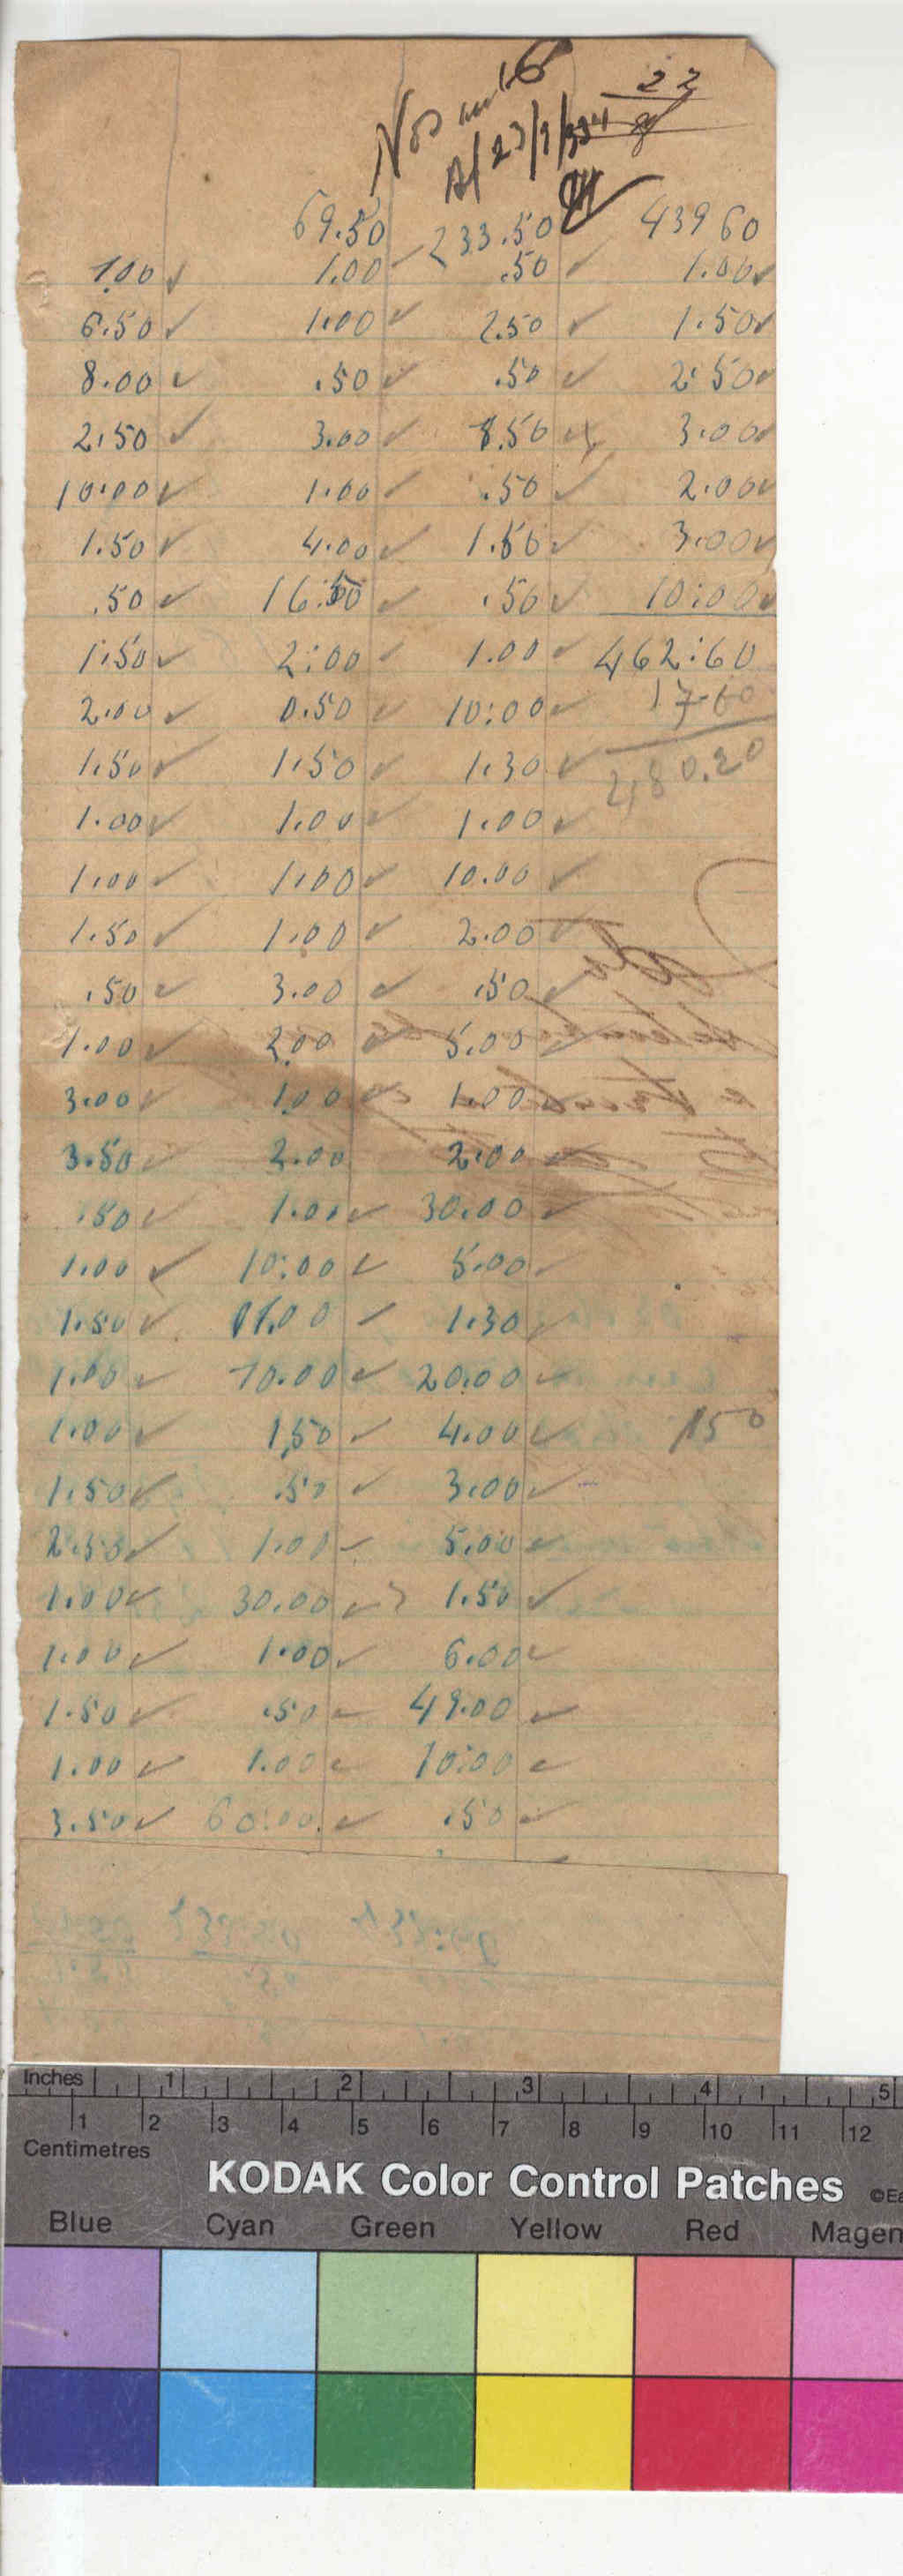 22
23/9/934
69.50 233.50 43960
1.00 1.00 .50 1.00
6.50 1.00 2.50 1.50
8.00 .50 .50 2.50
2.50 3.00 8.50 3.00
10.00 1.00 .50 2.00
1.50 4.00 1.50 3.00
.50 16.50 .50 10:00
1.50 2:00 1.00 462:60
2.00 0.50 10:00 17-60
1.50 1.50 1.30 2,80.20
1.00 1.00 1.00
1.00 1.00 10.00
1.50 1.00 2.00
.50 3.00 .50
1.00 2.00 5.00
3.00 1.00 1.00
3.50 2.00 2.00
.50 1.00 30.00
1.00 10:00 5.00
1.50 11.00 1.30
1.00 10.00 20.00
1.00 1,50 4.00 150
1.50 .50 3.00
2.50 1.00 5.00
1.00 30.00 1.50
1.00 1.00 6.00
1.50 .50 49.00
1.00 1.00 10:00
3.50 60:00 .50
Inches 1 2 3 4 5
1 2 3 4 5 6 7 8 9 10 11 12
Centimetres
KODAK Color Control Patches
Blue Cyan Green Yellow Red Magen